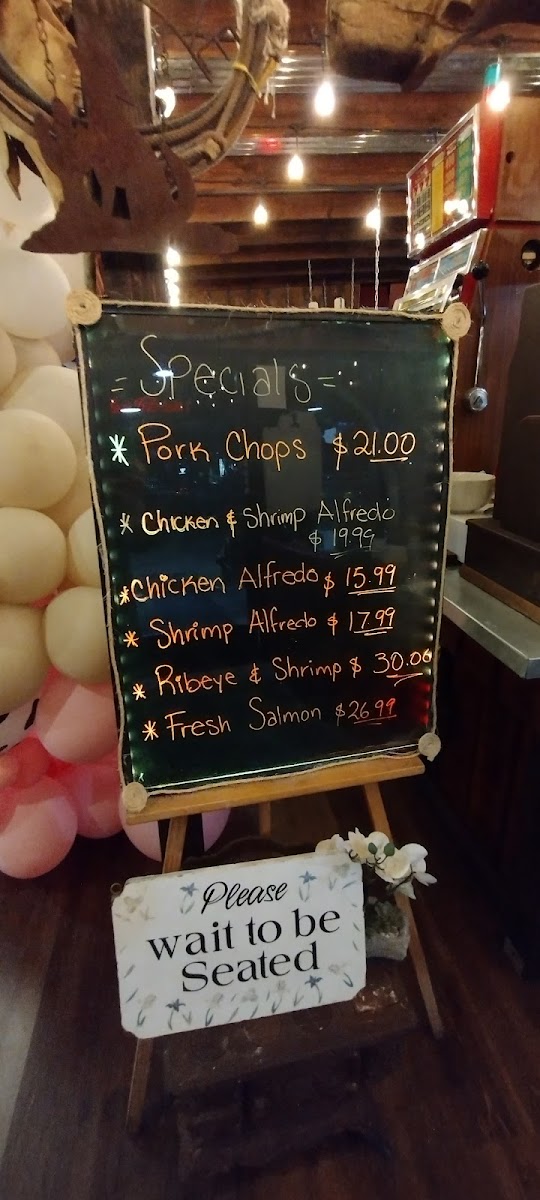 = Specials =
* Pork Chops $21.00
* Chicken & Shrimp Alfredo
$ 19.99
* Chicken Alfredo $ 15.99
* Shrimp Alfredo $ 17.99
* Ribeye & Shrimp $ 30.00
* Fresh Salmon $26.99
Please
wait to be
Seated